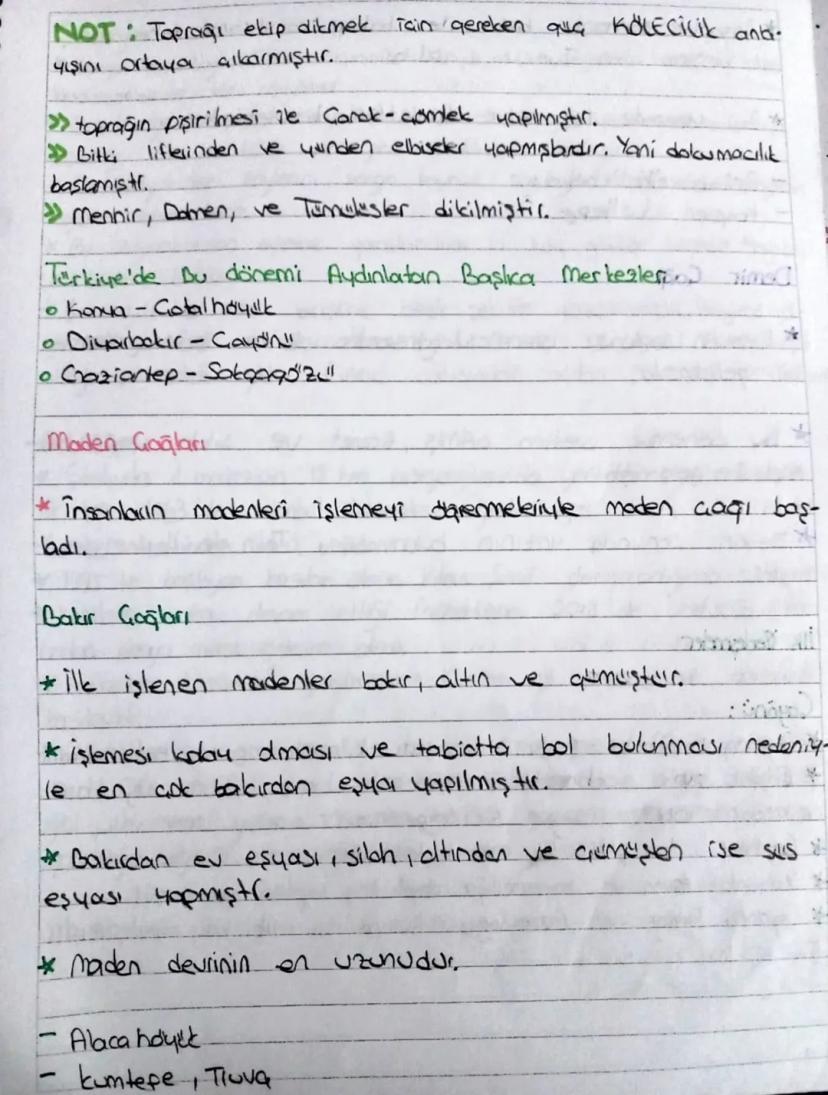 NOT : Toprağı ekip dikmek için gereken güç KÖLECİLİK anla-
yışını ortaya çıkarmıştır.
>> toprağın pişirilmesi ile Çanak-çömlek yapılmıştır.
>> Bitki liflerinden ve yünden elbiseler yapmışlardır. Yani dokumacılık
başlamıştır.
>> Menhir, Dolmen, ve Tümülüsler dikilmiştir.
Türkiye'de Bu dönemi Aydınlatan Başlıca Merkezler
o Konya - Çatalhöyük
o Diyarbakır - Çayönü
o Gaziantep - Sakçagözü
Maden Çağları
* İnsanların madenleri işlemeyi öğrenmeleriyle maden çağı baş-
ladı.
Bakır Çağları
* İlk işlenen madenler bakır, altın ve gümüştür.
* işlemesi kolay olması ve tabiatta bol bulunması nedeniy-
le en çok bakırdan eşya yapılmıştır.
* Bakırdan ev eşyası, silah, altından ve gümüşten ise süs
eşyası yapmıştır.
* Maden devrinin en uzunudur.
- Alaca höyük
- kumtepe, Truva